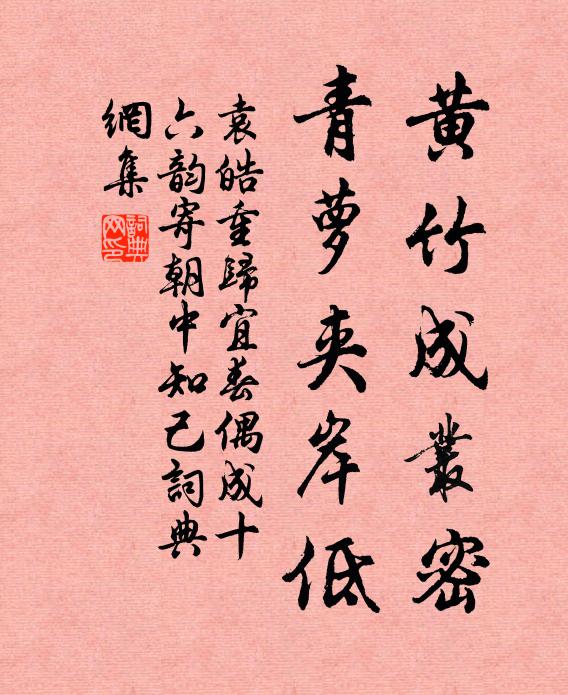 黃竹成叢密
青萝夾岸低
袁皓重歸宜春偶成十
六韵寄朝中知己詞典
網集
詞典网印